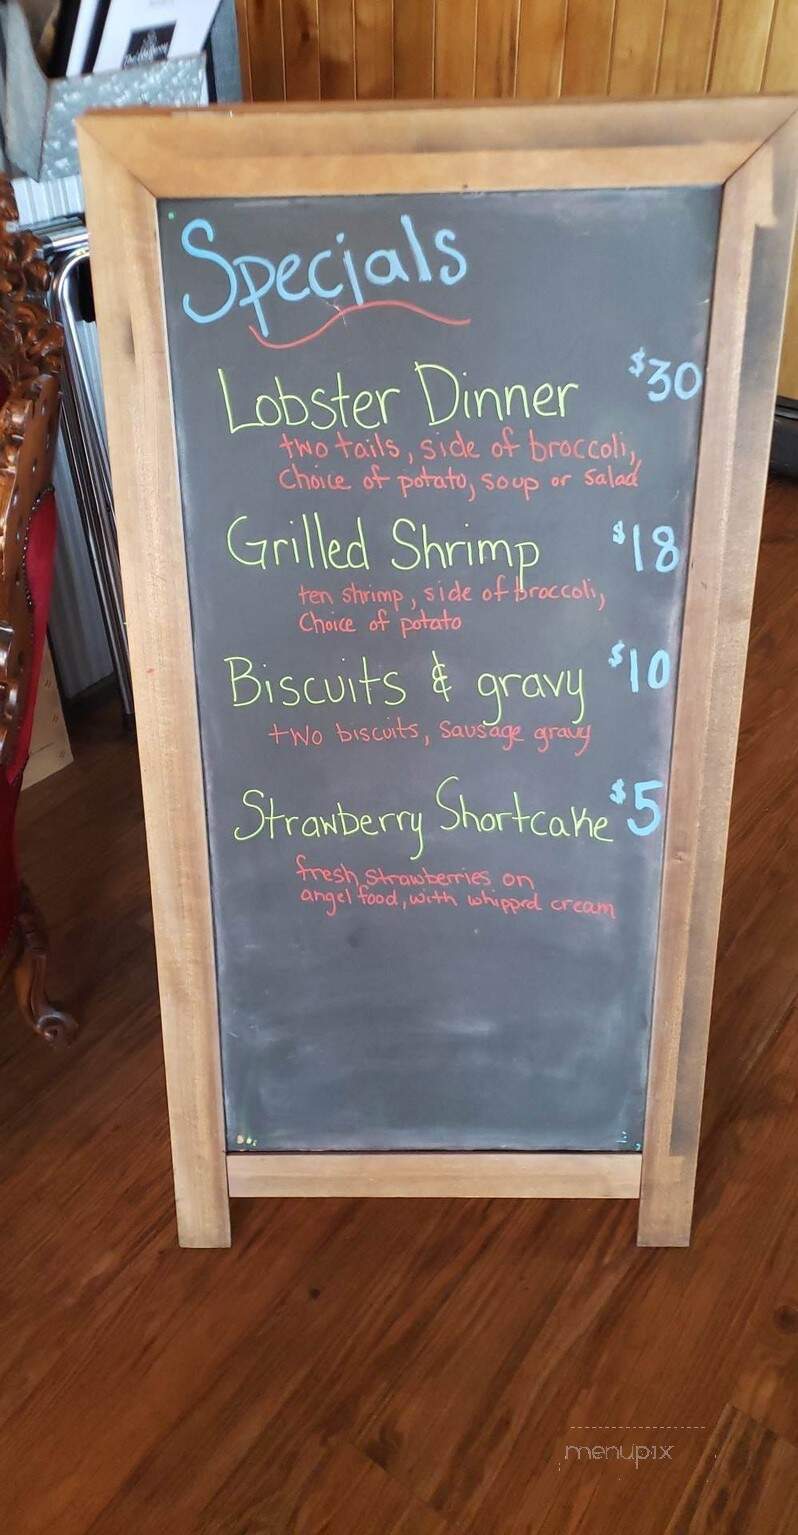 Specials
Lobster Dinner $30
two tails, side of broccoli,
choice of potato, soup or salad
Grilled Shrimp $18
ten shrimp, side of broccoli,
Choice of potato
Biscuits & gravy $10
two biscuits, sausage gravy
Strawberry Shortcake $5
fresh strawberries on
angel food, with whipped cream
menupix